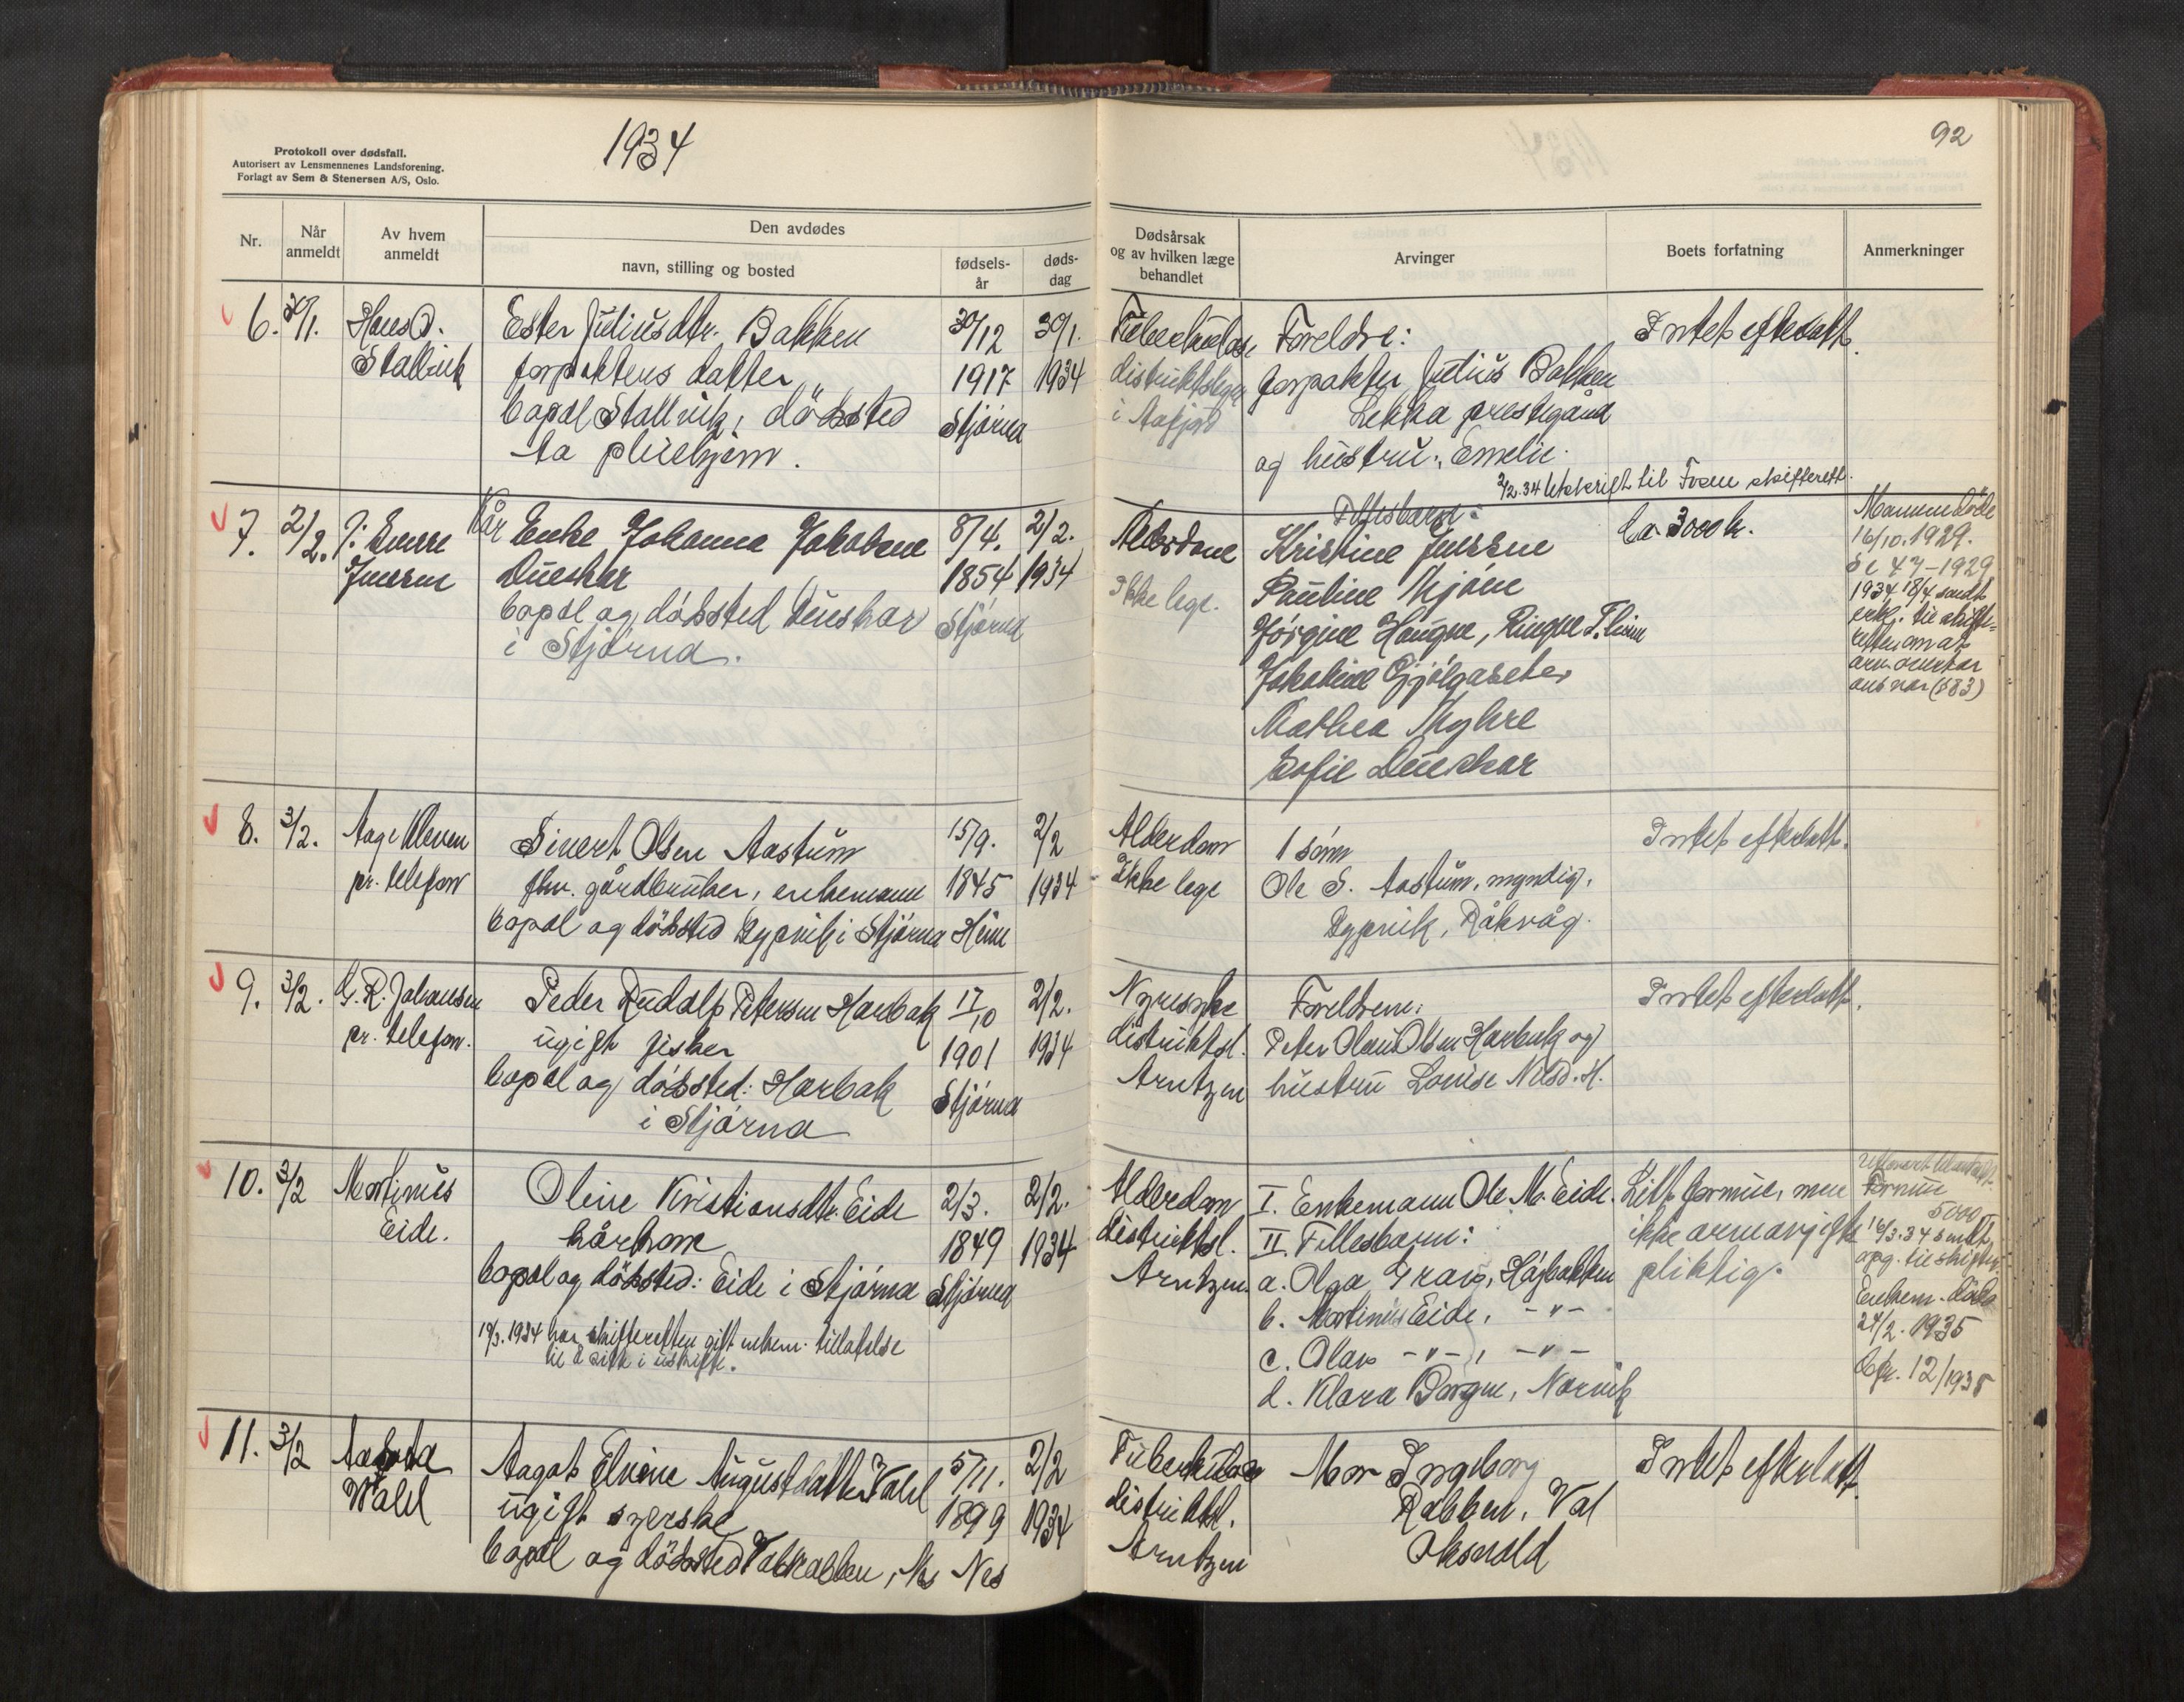 1934
92
Protokoll over dødsfall.
Autorisert av Lensmennenes Landsforening.
Forlagt av Sem & Stenersen A/S, Oslo.
Nr.
Når anmeldt
Av hvem anmeldt
Den avdødes
navn, stilling og bosted
fødsels-år
døds-dag
Dødsårsak og av hvilken læge behandlet
Arvinger
Boets forfatning
Anmerkninger
6. 30/1. Hans O. Stallvik
Ester Juliusdtr. Bakken
forpakters datter
bopæl Stallvik, dödssted
pleiehjem.
30/12 1917 Stjørna
30/1. 1934
Tuberkulose
distriktslegen
i Aafjord
Foreldre:
forpakter Julius Bakken
Lekka prestegård
og hustru: Emelie.
Intet efterlatt.
2/2.34 utskrift til Fosen skifterett.
7. 2/2. Iverssen
Kår Enke Johanna Jakobsen
Dueskar
bopæl og dödssted Dueskar
i Stjørna.
8/4. 1854 Stjørna
2/2. 1934
Alderdom
Ikke lege.
Fellesbarn:
Kristine Iverssen
Pauline Mjøen
Jørgine Haugen, Ringen
Jakobine Gjølgaseter
Mathea Myhre
Sofie Dueskar
Ca. 3000 kr.
Mannen döde
16/10. 1929.
Se 47-1929
1934 18/4 sendt
erkl. til skifte-
retten om at
arv. overtar
ansvar (§83)
8. 3/2. Aage Kleven
pr. telefon
Sivert Olsen Aastum
fhv. gårdbruker, enkemann
bopæl og dödssted Dypvik i Stjørna
15/9. 1845
2/2 1934
Alderdom
Ikke lege
1 sønn
Ole S. Aastum, myndig,
Dypvik, Råkvåg.
Intet efterlatt.
9. 3/2. G. R. Johansen
pr. telefon.
Peder Rudolf Petersen Harbak
ugift fisker
bopæl og dödssted: Harbak
i Stjørna
17/10 1901 Stjørna
2/2. 1934
Nyresyke
distriktsl.
Arntzen
Foreldrene:
Peter Olaus Olsen Harbak og
hustru Lovise Nilsd. H.
Intet efterlatt.
10. 3/2 Martinus
Eide.
Oline Kristiansdtr. Eide
kårkone
bopæl og dödssted: Eide i Stjørna
2/3. 1849 Stjørna
2/2. 1934
19/3. 1934 har skifteretten gitt enkem. tillatelse
til å sitte i uskifte.
Alderdom
distriktsl.
Arntzen
I. Enkemann Ole M. Eide.
II. Fellesbarn:
a. Olga Grav, Højbakken
b. Martinus Eide, -"-
c. Olav -"-, -"-
d. Klara Borgen, Narvik
Litt formue, men
ikke arvavgifts
pliktig.
Formue
5000
16/3.34 sendt
opg. til skifter.
Enkem. döde
24/2. 1935
Cfr. 12/1935
11. 3/2
Wald
Aagot Elvine Augustdatter Vald
ugift syerske
bopæl og dödssted Valrabben, Nes
5/11. 1899 Nes
2/2 1934
Tuberkulose
distriktsl.
Arntzen
Mor Ingeborg
Rabben, Val
Oksvold
Intet efterlatt.